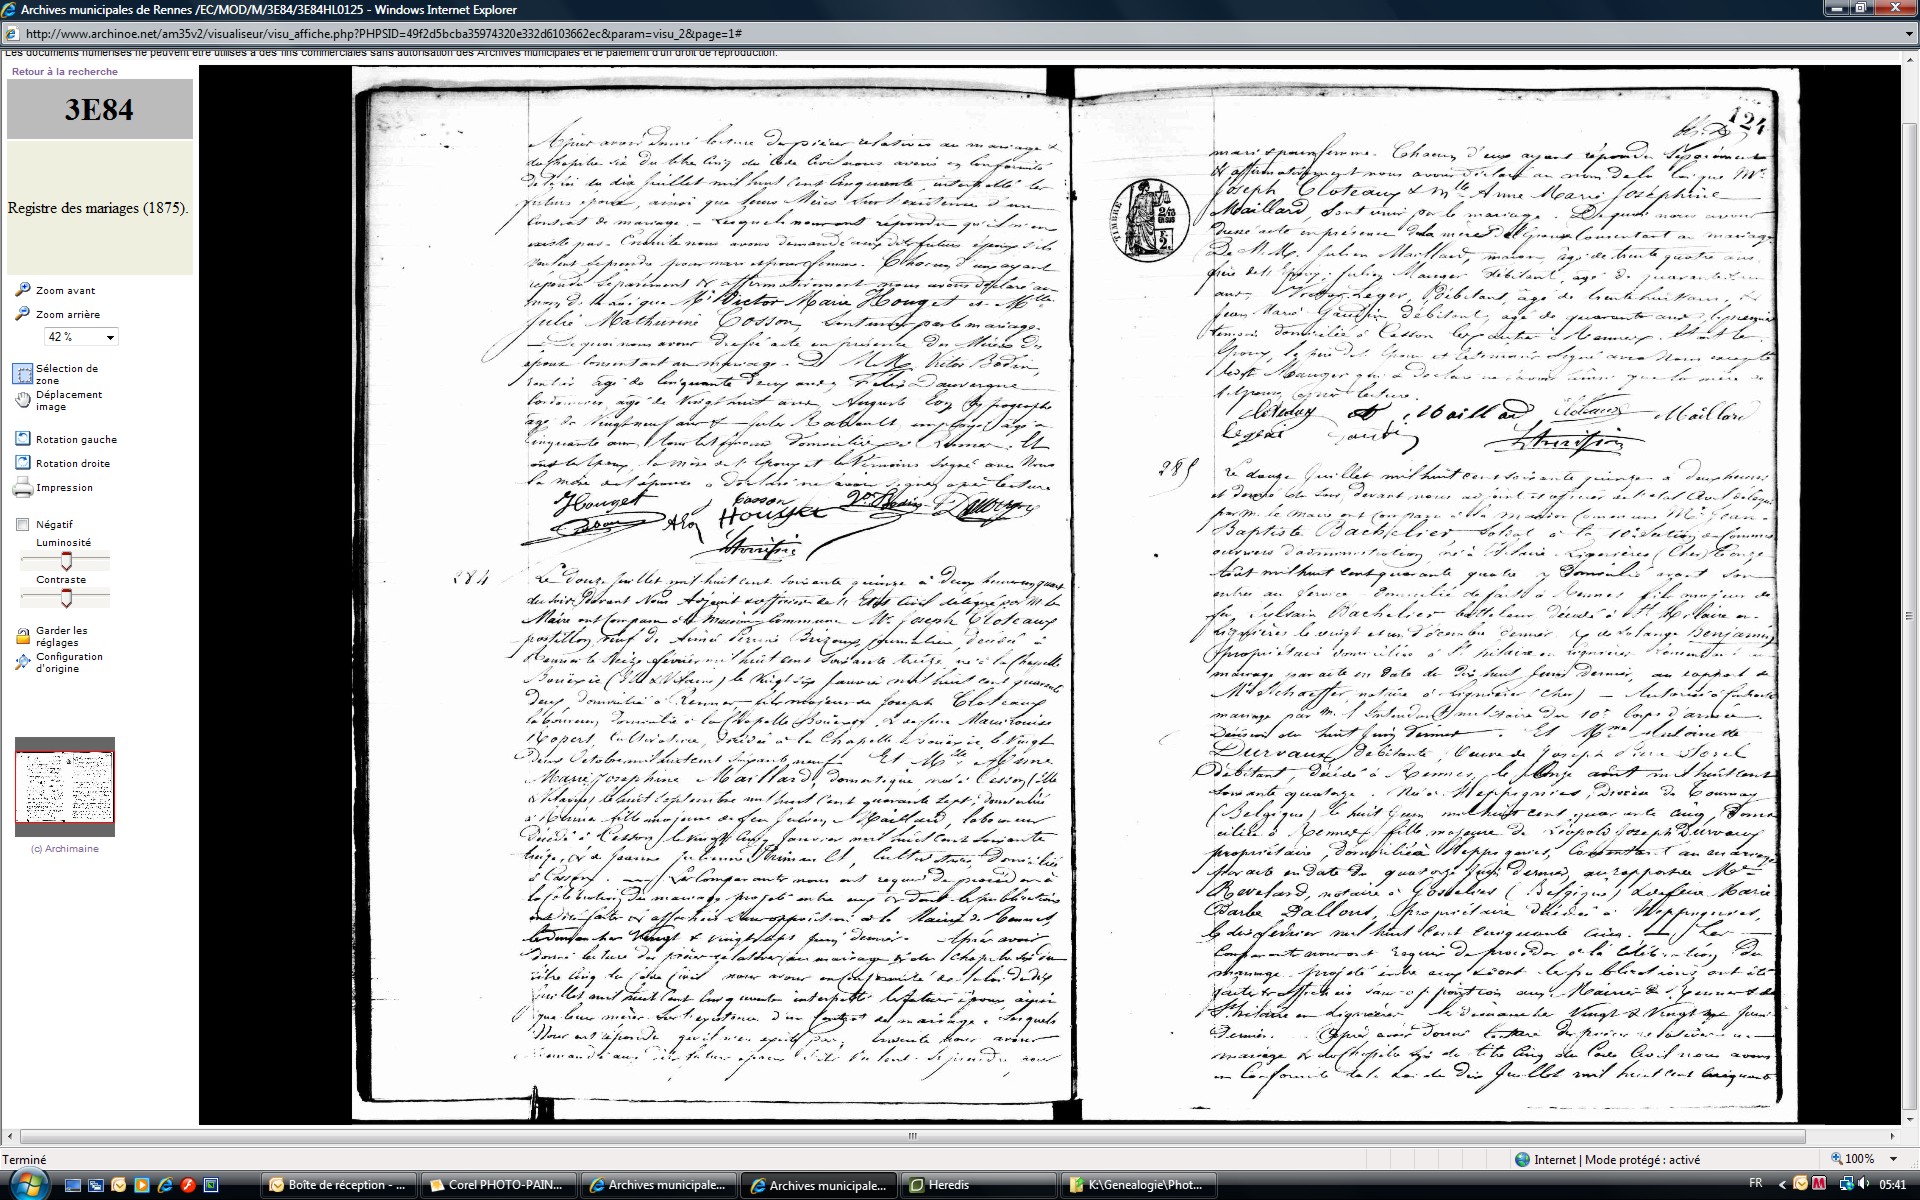 Archives municipales de Rennes /EC/MOD/M/3E84/3E84HL0125 - Windows Internet Explorer
http://www.archinoe.net/am35v2/visualiseur/visu_affiche.php?PHPSID=49f2d5bcba35974320e332d6103662ec&param=visu_2&page=1#
Les documents numérisés ne peuvent être utilisés à des fins commerciales sans autorisation des Archives municipales et le paiement d'un droit de reproduction.
Retour à la recherche
3E84
Registre des mariages (1875).
Zoom avant
Zoom arrière
42 %
Sélection de
zone
Déplacement
image
Rotation gauche
Rotation droite
Impression
Négatif
Luminosité
Contraste
Garder les
réglages
Configuration
d'origine
(c) Archimaine
Après avoir donné lecture des pièces relatives au mariage &
du chapitre six du titre cinq du Code Civil nous avons en conformité
de la loi du dix juillet mil huit cent cinquante, interpellé les
futurs époux, ainsi que leurs Mères sur l'existence d'un
Contrat de mariage. - Lesquels nous ont répondu qu'il n'en
existe pas. Ensuite nous avons demandé aux dits futurs époux s'ils
veulent se prendre pour mari et pour femme. Chacun d'eux ayant
répondu séparément & affirmativement nous avons déclaré au
nom de la loi que Mr Victor Marie Houget et Mlle
Julie Mathurine Cosson, sont unis par le mariage.
De quoi nous avons dressé acte en présence des Mères des
époux consentant au mariage. Et M.M. Victor Bodin,
rentier âgé de cinquante deux ans, Félix Dauvergne
cordonnier, âgé de vingt huit ans, Auguste typographe
âgé de vingt neuf ans & Jules employé, âgé de
cinquante ans, tous les témoins domiciliés à Rennes. Et
ont les époux, la mère de l'époux et les témoins signé avec Nous
la mère de l'épouse a déclaré ne savoir signer, après lecture
Houget Cosson Vor Bodin F. Dauvergne
Houget
284
Le douze juillet mil huit cent soixante quinze à deux heures un quart
du soir, Devant Nous Adjoint & officier de l'Etat Civil délégué par M. le
Maire ont comparu à la Maison Commune Mr Joseph Cloteaux
postillon, veuf de Aimée décédée à
Rennes le seize février mil huit cent soixante treize, né à la Chapelle
Bouëxic (Ille & Vilaine) le vingt six Janvier mil huit cent quarante
deux, domicilié à Rennes, fils majeur de Joseph Cloteaux
laboureur, domicilié à la Chapelle Bouëxic, & de feue Marie Louise
Ropert, cultivatrice, décédée à la Chapelle Bouëxic, le vingt
deux Octobre mil huit cent soixante neuf. Et Mlle Anne
Marie Joséphine Maillard, domestique, née à Cesson (Ille
& Vilaine) le huit septembre mil huit cent quarante sept, domiciliée
à Rennes, fille majeure de feu Julien Maillard, laboureur
décédé à Cesson, le vingt cinq Janvier mil huit cent soixante
treize, & de Jeanne Julienne cultivatrice, domiciliée
à Cesson. Les Comparants nous ont requis de procéder à
la célébration du mariage projeté entre eux & dont les publications
ont été faites & affichées sans opposition à la Mairie de Rennes
les dimanches Vingt & vingt sept juin dernier. Après avoir
donné lecture des pièces relatives au mariage & du chapitre six du
titre cinq du Code Civil, nous avons en conformité de la loi du dix
juillet mil huit cent cinquante interpellé les futurs époux, ainsi
que leurs mères sur l'existence d'un Contrat de mariage, lesquels
Nous ont répondu qu'il n'en existe pas, Ensuite nous avons
demandé aux dits futurs époux s'ils veulent se prendre pour
124
mari & pour femme. Chacun d'eux ayant répondu séparément
& affirmativement nous avons déclaré au nom de la loi que Mr
Joseph Cloteaux & Mlle Anne Marie Joséphine
Maillard, sont unis par le mariage. De quoi nous avons
dressé acte en présence de la mère de l'épouse consentant au mariage,
De M.M. Julien Maillard, maçon, âgé de trente quatre ans,
frère de l'épouse, Julien Mauger débitant, âgé de quarante
ans, Victor Leger, Débitant, âgé de trente huit ans, &
Jean Marie Gaudin débitant, âgé de quarante ans, le premier
témoin domicilié à Cesson les autres à Rennes. Et ont les
époux, le père de l'époux et les témoins signé avec Nous excepté
ledit Mauger qui a déclaré ne savoir ainsi que la mère de
l'épouse, après lecture.
Cloteaux A. Maillard Cloteaux Maillard
Leger Gaudin
TIMBRE
285
Le douze Juillet mil huit cent soixante quinze à deux heures
et demie du soir, devant nous adjoint et officier de l'état Civil délégué
par M. le Maire ont comparu à la Maison Commune Mr Jean
Baptiste Bachelier, soldat à la 10e section de Commis
ouvriers d'administration, né à St hilaire en Lignières (Cher) le onze
août mil huit cent quarante quatre, y domicilié avant son
entrée au Service, domicilié de fait à Rennes, fils majeur de
feu Silvain Bachelier batteleur, décédé à St Hilaire en
Lignières le vingt et un Décembre dernier, & de Solange Benjamin,
propriétaire domiciliée à St hilaire en Lignières consentant au
mariage par acte en date du dix huit Juin dernier, au rapport de
Me Schaeffer, notaire à Lignières (Cher) - Autorisé à contracter
mariage par M. l'Intendant militaire du 10e Corps d'armée
Décision du huit Juin dernier. Et Mme Antoinette
Durvaux, débitante, Veuve de Joseph Sorel
débitant, décédé à Rennes, le onze août mil huit cent
soixante quatorze. Née à Heppignies, Diocèse de Tournay
(Belgique) le huit Juin mil huit cent quarante cinq, domi-
ciliée à Rennes, fille majeure de Léopold Joseph Durvaux
propriétaire, domicilié à Heppignies, Consentant au mariage
par acte en date du quatorze Juin dernier, au rapport de Me
Revelard, notaire à Gosselies (Belgique) & de feue Marie
Barbe Dallons, propriétaire décédée à Heppignies,
le dix février mil huit cent cinquante cinq. Les
Comparants nous ont requis de procéder à la célébration du
mariage projeté entre eux & dont les publications ont été
faites & affichées sans opposition aux Mairies de Rennes & de
St hilaire en Lignières les dimanches Vingt & Vingt sept Juin
Dernier. Après avoir donné lecture des pièces relatives au
mariage & du Chapitre six du titre Cinq du Code Civil nous avons
en Conformité de la Loi du Dix Juillet mil huit cent cinquante
Terminé
Internet | Mode protégé : activé
100%
Boîte de réception - ...
Corel PHOTO-PAIN...
Archives municipale...
Archives municipale...
Heredis
K:\Genealogie\Phot...
FR
05:41